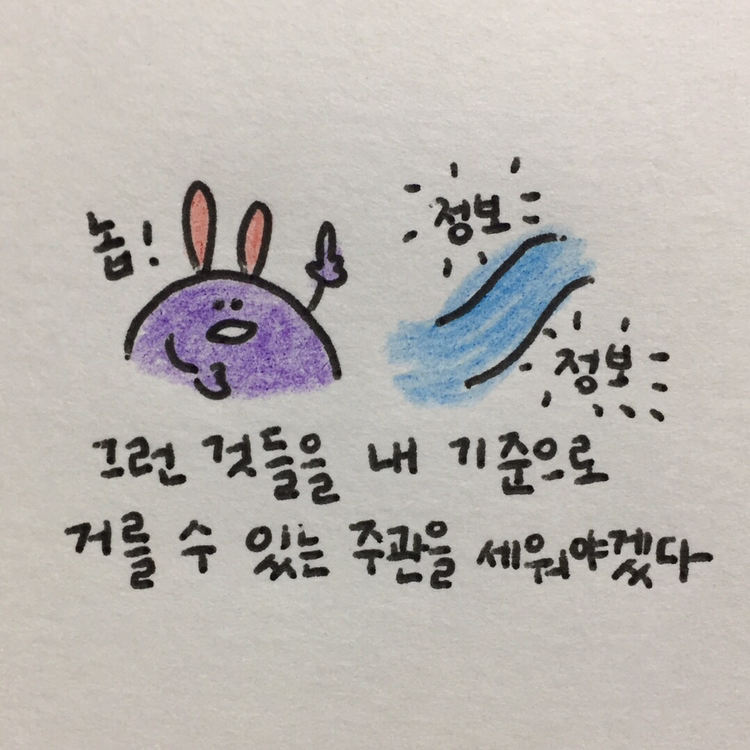 놉!
정보
정보
그런 것들을 내 기준으로
거를 수 있는 주관을 세워야겠다